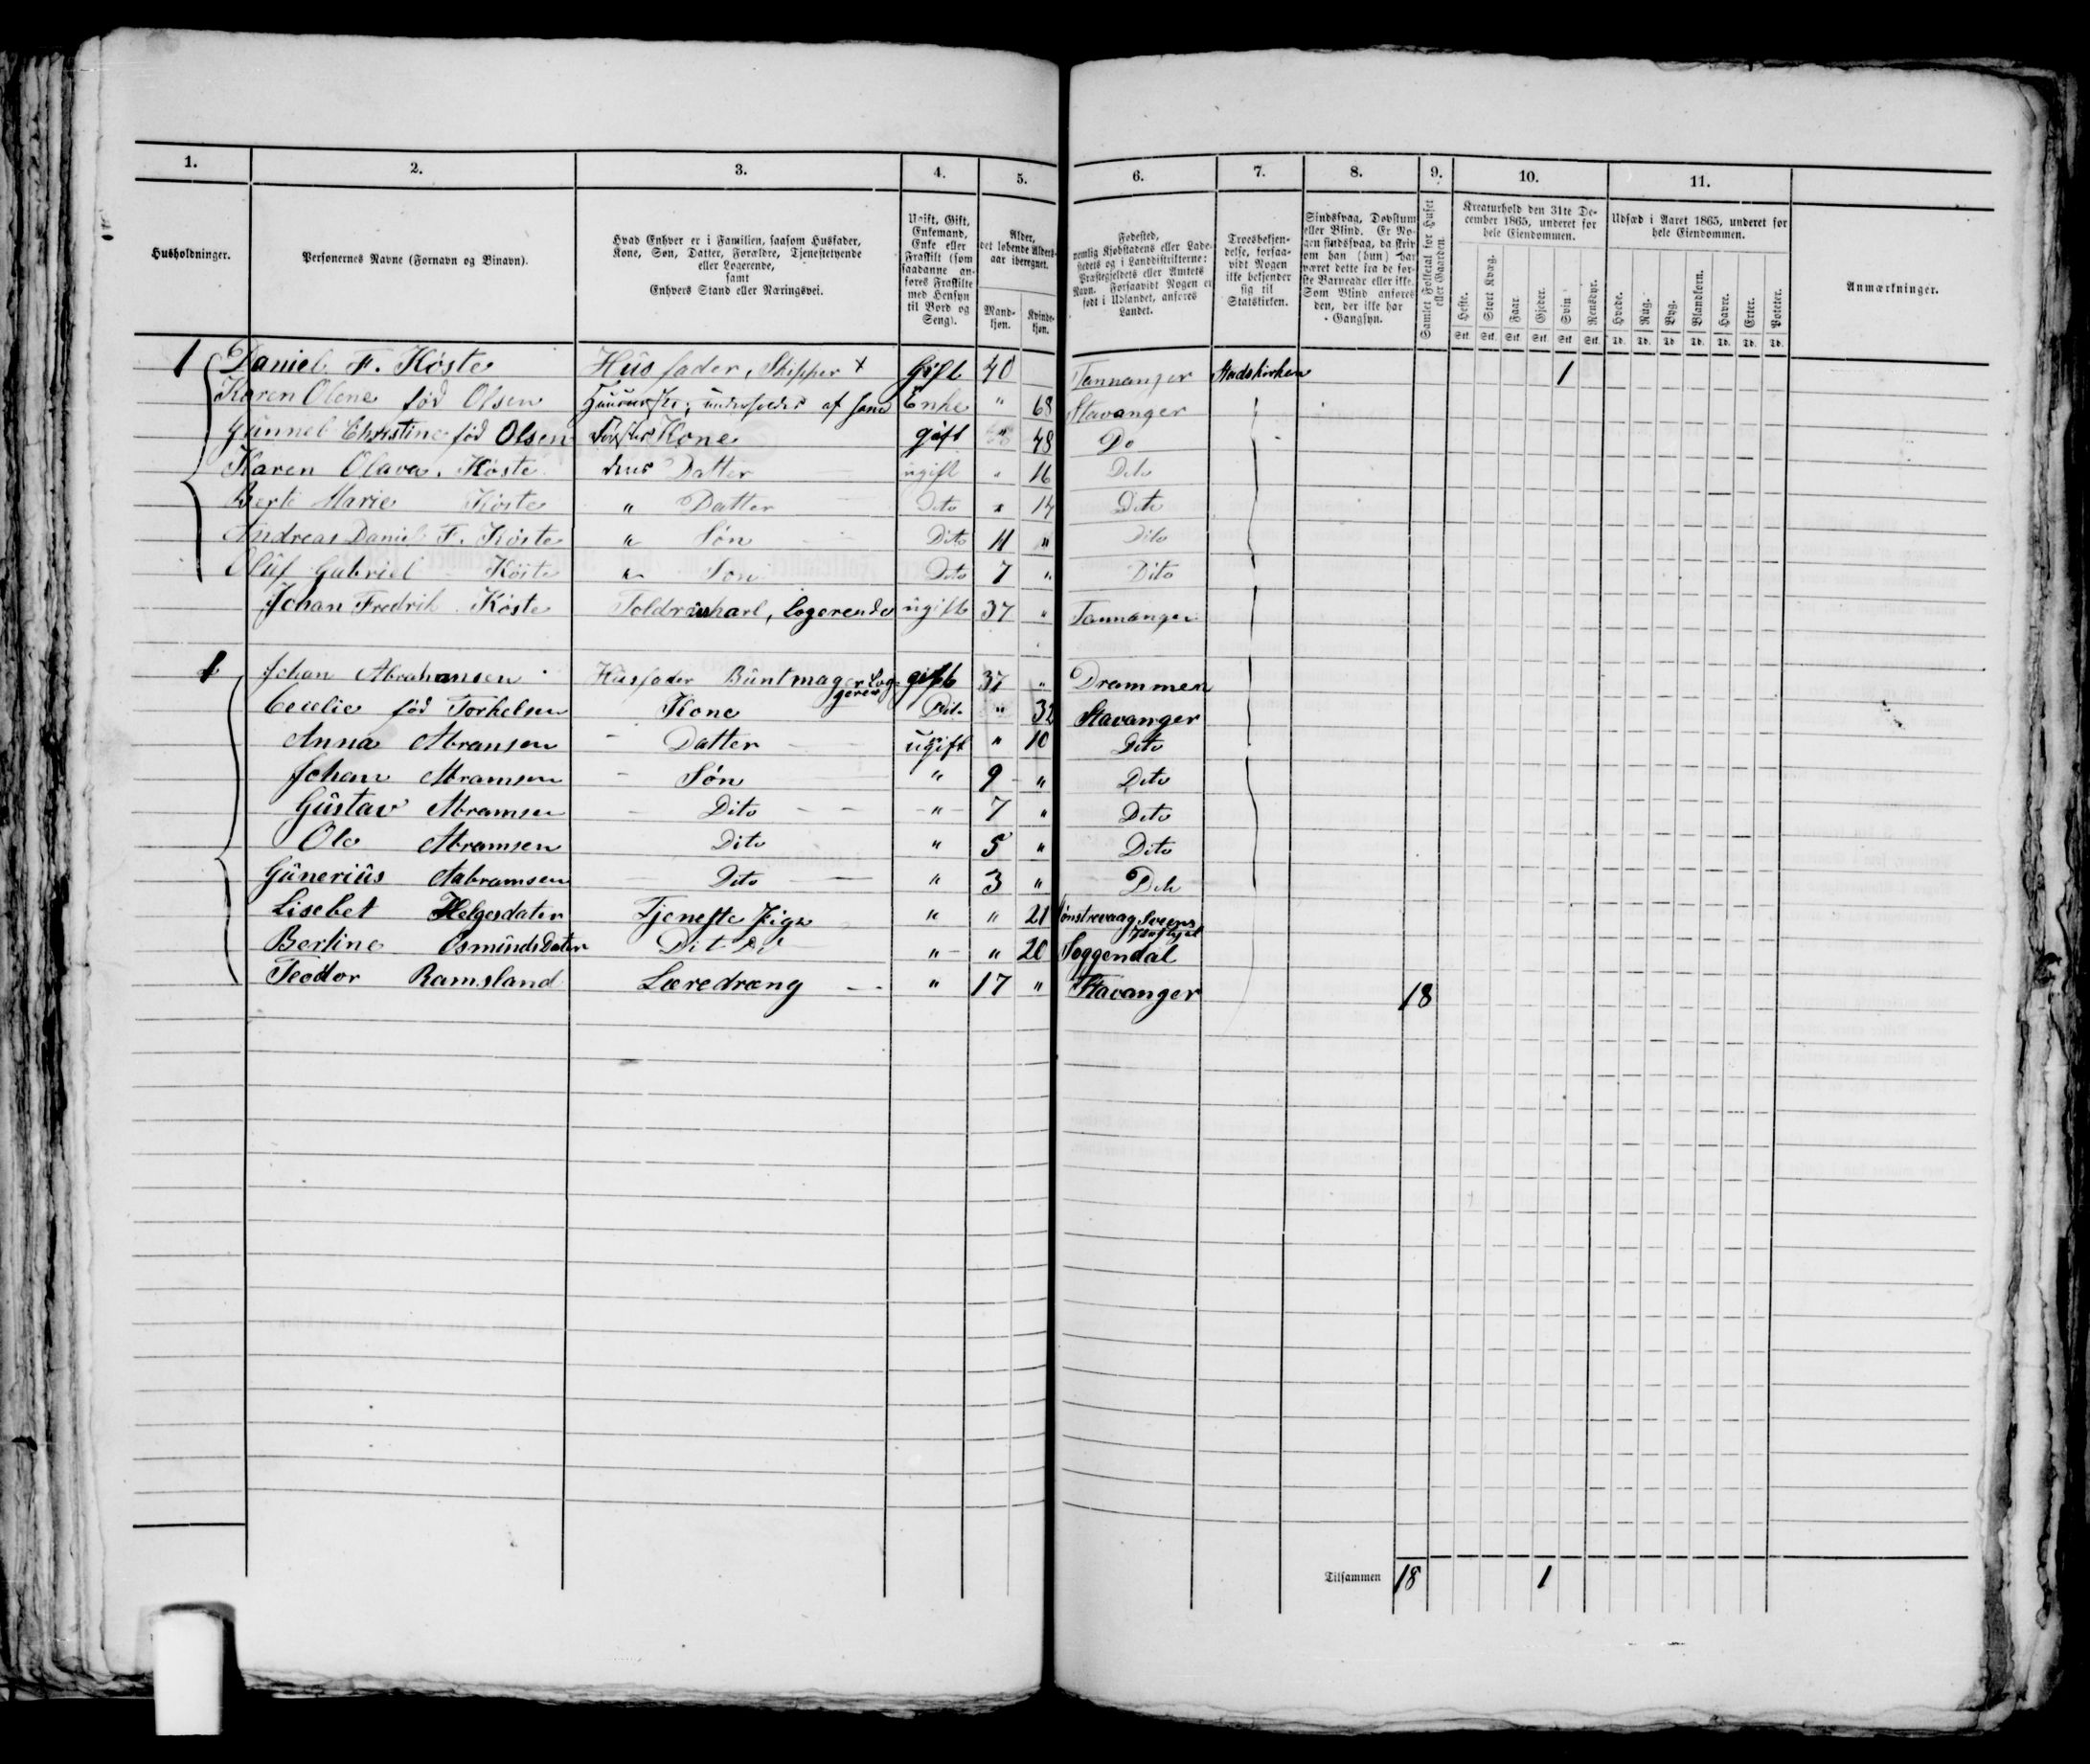 1. 2. 3. 4. 5. 6. 7. 8. 9. 10. 11.
Husholdninger.
Personernes Navne (Fornavn og Binavn).
Hvad Enhver er i Familien, saasom Husfader,
Kone, Søn, Datter, Forældre, Tjenestetyende
eller Logerende,
samt
Enhvers Stand eller Næringsvei.
Ugift, Gift,
Enkemand,
Enke eller
Fraskilt (som
saadanne an-
føres Fraskilte
med Hensyn
til Bord og
Seng).
Alder,
det løbende Alders-
aar iberegnet.
Mand-
kjøn.
Kvinde-
kjøn.
Fødested,
nemlig Kjøbstadens eller Lade-
stedets og i Landdistrikterne:
Præstegjeldets eller Amtets
Navn. Forsaavidt Nogen er
født i Udlandet, anføres
Landet.
Troesbekjen-
delse, forsaa-
vidt Nogen
ikke bekjender
sig til
Statskirken.
Sindssvag, Døvstum
eller Blind. Er No-
gen sindssvag, da skriv
om han (hun) har
været dette fra de før-
ste Barneaar eller ikke.
Som Blind anføres
den, der ikke har
Gangsyn.
Samlet Folketal for Huset
eller Gaarden.
Kreaturhold den 31te De-
cember 1865, underet for
hele Eiendommen.
Heste. Stort Kvæg. Faar. Gjeder. Svin. Rensdyr.
Stk. Stk. Stk. Stk. Stk. Stk.
Udsæd i Aaret 1865, underet for
hele Eiendommen.
Hvede. Rug. Byg. Blandkorn. Havre. Erter. Poteter.
Td. Td. Td. Td. Td. Td. Td.
Anmærkninger.
1 Daniel F. Köste Husfader, Skipper x Gift 40 Tannanger Stadskirken 1
Karen Olene fød Olsen af Enke " 68 Stavanger
Gunnel Christine fød Olsen Kone gift " 48 Do
Karen Olava. Köste Datter ugift " 16 Dito
Berte Marie Köste " Datter Dito " 14 Dito
Andreas Daniel F. Köste " Søn Dito 11 " Dito
Oluf Gabriel Köste " Søn Dito 7 " Dito
Johan Fredrik Köste logerende ugift 37 " Tannanger
1 Johan Abrahamsen Husfader Buntmager Lo-
gerer gift 37 " Drammen
Cecelie fød Torkelsen Kone Dito " 32 Stavanger
Anna Abramsen Datter ugift " 10 Dito
Johan Abramsen Søn " 9 " Dito
Gustav Abramsen Dito " 7 " Dito
Ole Abramsen Dito " 5 " Dito
Günerius Aabramsen Dito " 3 " Dito
Lisebet Helgesdater Tjeneste Pige " " 21
Bertine OsmundsDater Dito Do " " 20 Soggendal
Teodor Ramsland Læredreng " 17 " Stavanger 18
Tilsammen 18 1